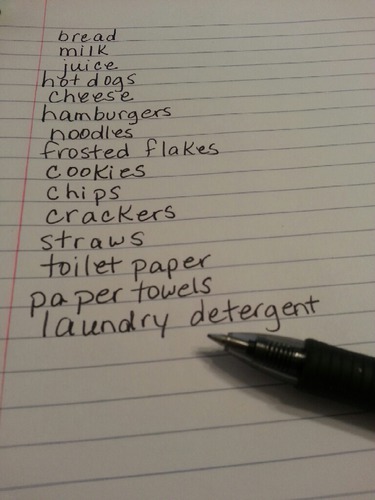 bread
milk
juice
hot dogs
cheese
hamburgers
noodles
frosted flakes
cookies
chips
crackers
straws
toilet paper
paper towels
laundry detergent